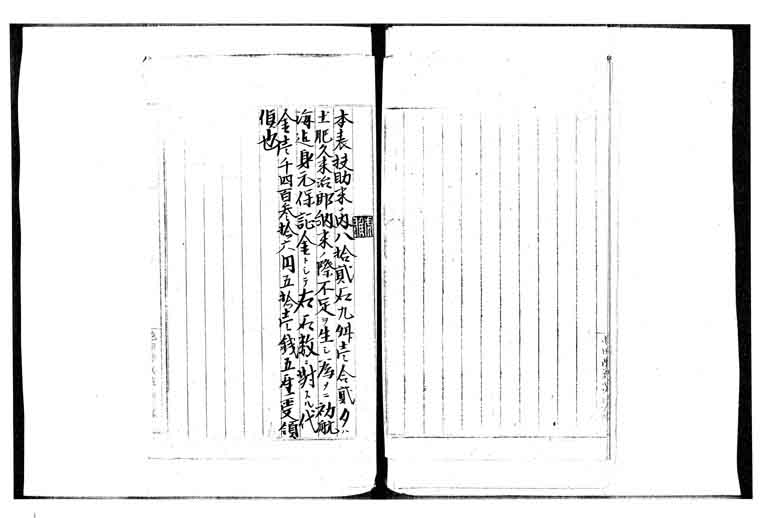 本表扶助米ノ内八拾貳石九舛壱合貳夕ハ
土肥久米治郎納米ノ際不足ヲ生シ為メニ初航
海迠身元保証金トシテ右石数ニ対スル代
金壱千四百参拾六円五拾壱銭五厘受領
偵也